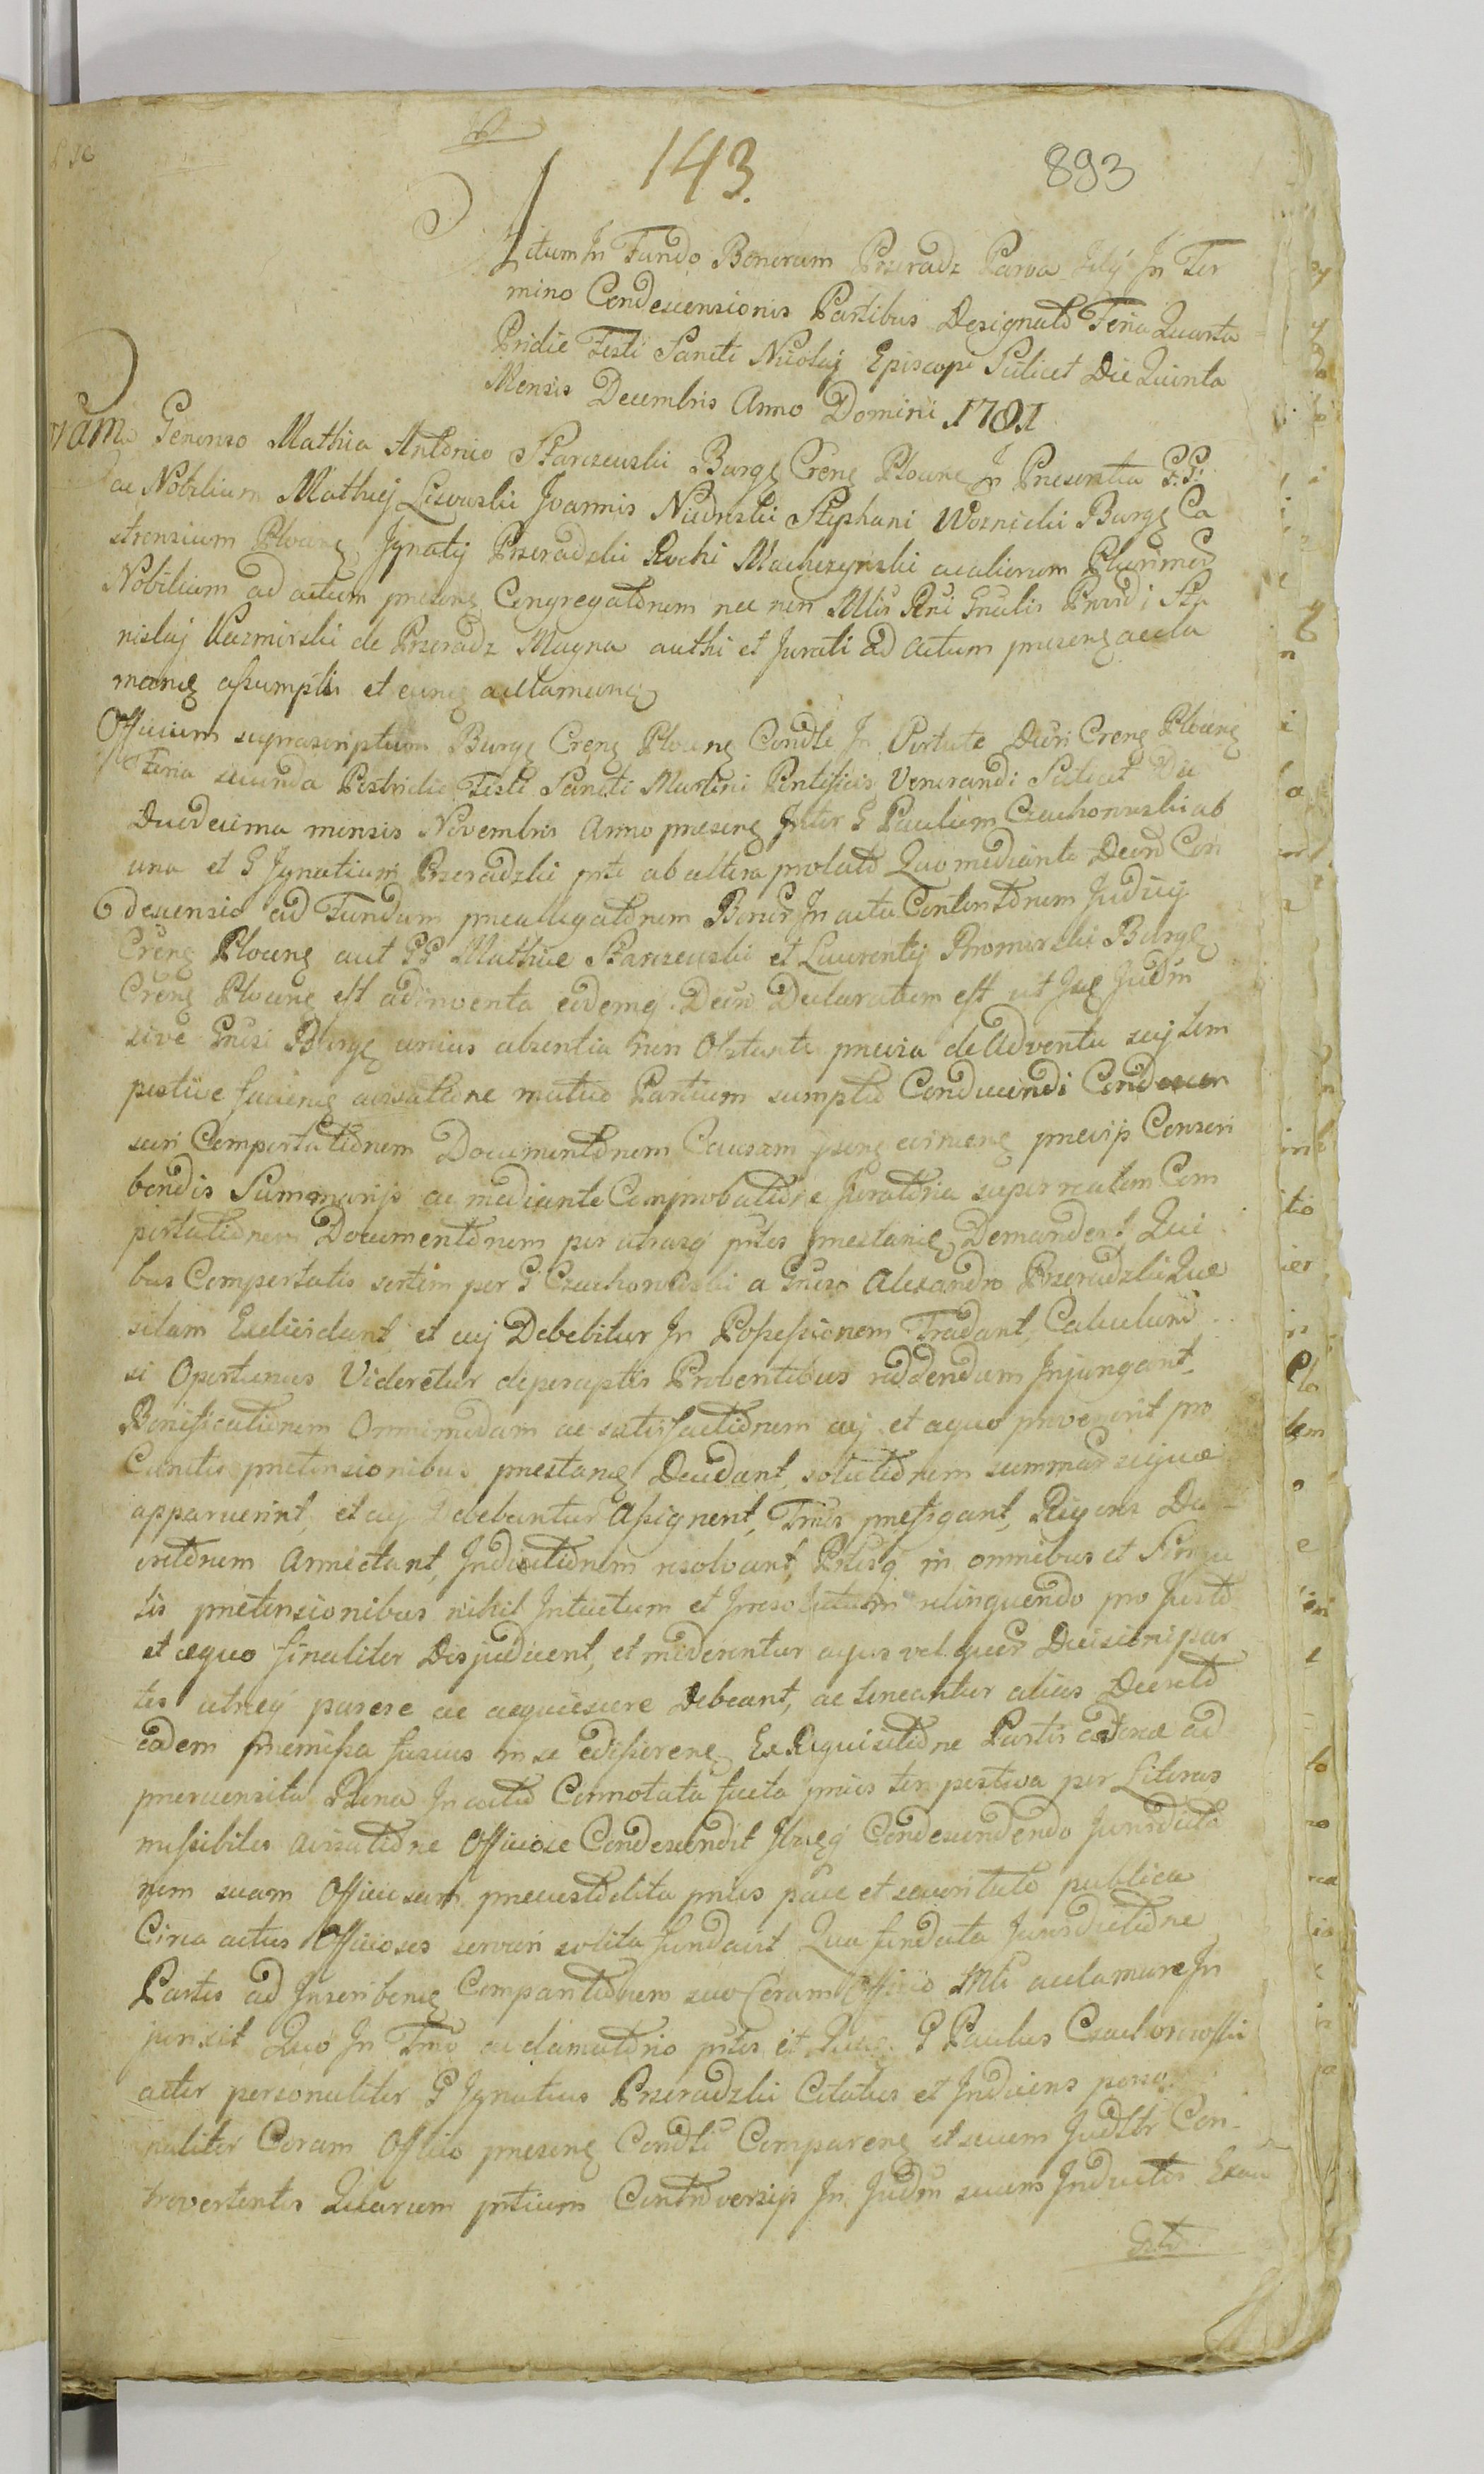 143.
893
Actum In Fundo Bonorum Przeradz Parva In Ter
mino Condescensionis Partibus Designato Feria Quarta
Pridie Festi Sancti Nicolaj Episcopi Scilicet Die Quinta
Mensis Decembris Anno Domini 1781
Coram Generoso Mathia Antonio Starczewski Burg Creng Ploceng In Presentia G.G.
ac Nobilium Mathiej Lisowski Joannis Niedrski Stephani Woznicki Burg Ca
strensium Ploceng Ignatij Przeradzki Rochi Machczynski ac aliorum Plurimor
Nobilium ad actum preseng Congregatorum nec non Mlis Rni Gnalis Provdi Sta
nislaj Kazmirski de Przeradz Magna authi et Jurati ad actum preseng accla
maneg assumpti et euneg acclamaneg
Officium suprascriptum Burg Creng Ploceng Condle In Virtute Decri Creng Ploceng
Feria secunda Postridie Festi Sancti Martini Pontificis Venerandi Scilicet Die
Duodecima mensis Novembris Anno preseng Inter G Paulum Czachorowski ab
una et G Ignatium Przeradzki prte ab altera prolato Quo mediante Decro Con
descensio ad Fundum preallegatorum Bonor In actu Contentorum Judicij
Creng Ploceng aut GG Mathiae Starczewski et Laurentij Bromirski Burg
Creng Ploceng est adinventa eidemq Decro Declaratum est ut Idq Judm
sive Gnrsi Burg unius absentia non Obstante previa de Adventu suj tem
pestive facieneg avisatione mutuo Partium sumptu Conducendi Condescen
suri Comportationem Documentorum Causam pseng cirneneg previs Conscri
bendis Summarijs ac mediante Comprobatione Juratoria super realem Com
portationem Documentorum per utrasq prtes prestaneg Demandent Qui
bus Comportatis sortem per G Czachorowski a Gnrso Alexandro Przeradzki Quae
sitam Elucidant et cuj Debebitur In Possessionem Tradant, Calculum
si Oportunus Videretur de perceptis Proventibus reddendum Injungant
Bonificationem Omnimodam ac satisfactionem cuj et a quo provenerit pro
Cunctis pretensionibus prestaneg Decidant, solutionem summar siquae
apparuerint, et cuj Debebantur Assignent, Trmos prefigant, Rigens De
cretorum Annectant, Indicationem resolvant, Prtesq in omnibus et Singu
lis pretensionibus nihil Intactum et Irresolutum relinquendo pro Justo
et aequo finaliter Disjudicent, et moderentur cujus vel quor Decisioni par
tes utraeq parere ac acquiescere Debeant, ac teneantur alias Decreto
eodem premissa fusius in se edisserenq Ex Requisitione Partis actorae ad
prerecensita Bona In actu Connotata facta prius tempestiva per Literas
missibiles avisatione Officiose Condescendit Ibiq Condescendendo Jurisdictio
nem suam Officiosam precustodita prius pace et securitate publica
Circa actus Officiosos servari solita fundavit Qua fundata Jurisdictione
Partes ad Inscribeneg Comparitionem suo Coram Officio Mli acclamare In
junxit Quo In Trno acclamatorio prtes et G Paulus Czachorowski
actor personaliter G Ignatius Przeradzki Citatus et Inducens perso
naliter Coram Officio preseng Condli Compareneg et secum Judtlr Con-
trovertentes Quarum prtium Controversijs In Judm suum Inductis Exau